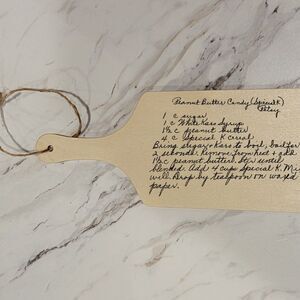 Peanut Butter Candy (Special K)
Patsy
1 c sugar
1 c White Karo Syrup
1½ c peanut butter
4 c Special K Cereal
Bring sugar + Karo to boil, boil for
2 seconds. Remove from heat + add
1½ c peanut butter. Stir until
blended. Add 4 cups Special K. Mix
well. Drop by teaspoon on waxed
paper.